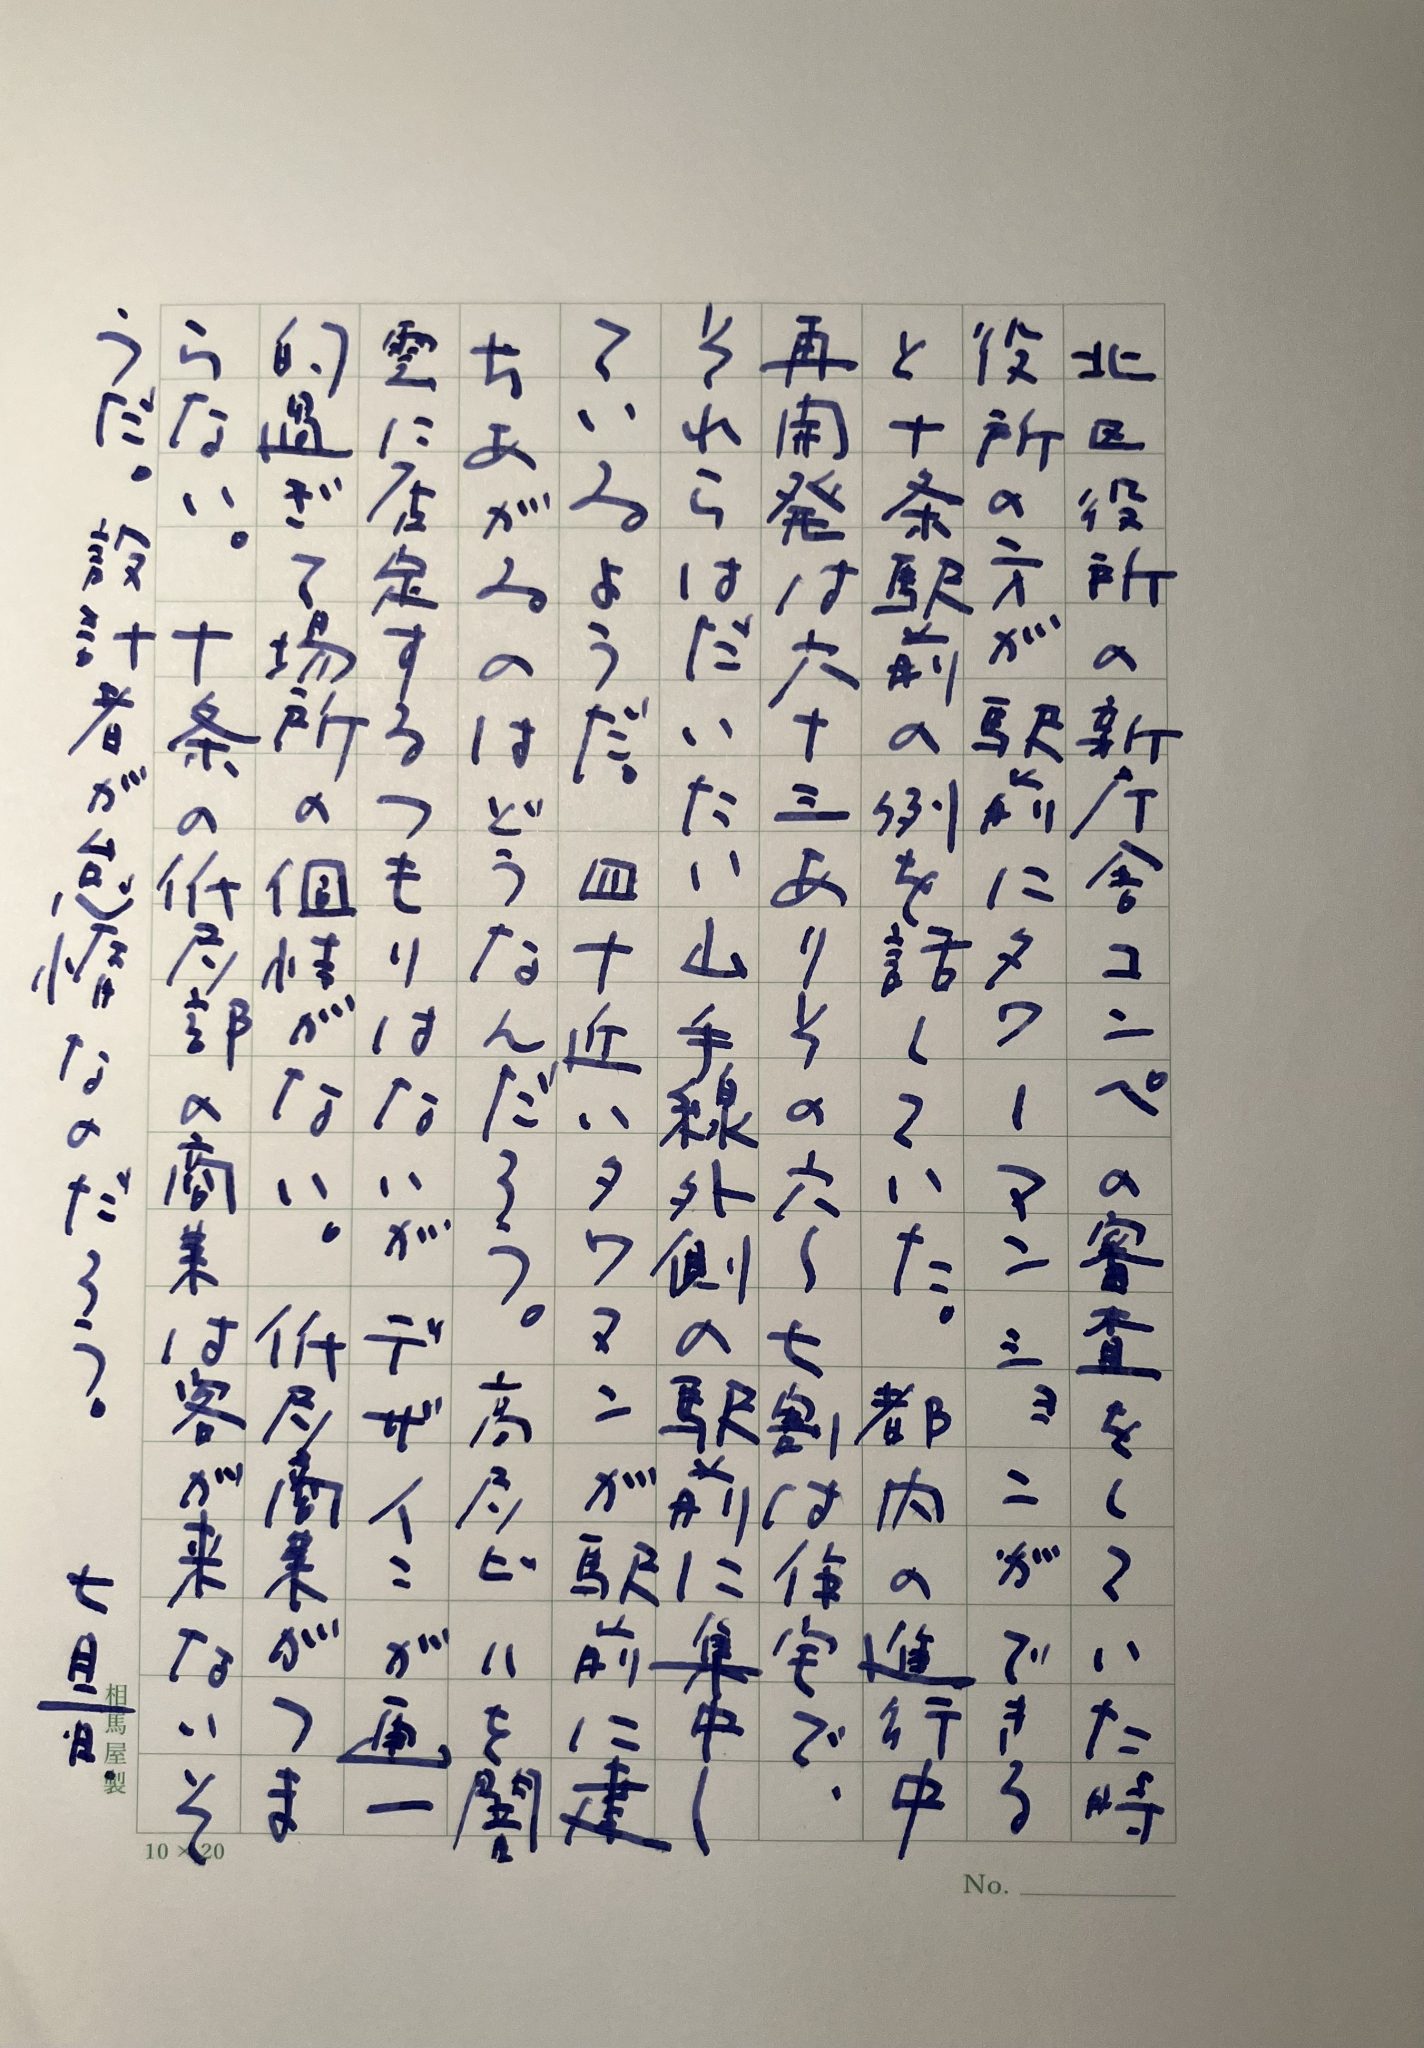 北区役所の新庁舎コンペの審査をしていた時
役所の方が駅前にタワーマンションができる
と十条駅前の例を話していた。都内の進行中
再開発は六十三ありその六〜七割は住宅で、
それらはだいたい山手線外側の駅前に集中し
ているようだ。四十近いタワマンが駅前に建
ちあがるのはどうなんだろう。高層ビルを闇
雲に否定するつもりはないがデザインが画一
的過ぎて場所の個性がない。低層商業がつま
らない。十条の低層部の商業は客が来ないそ
うだ。設計者が怠惰なのだろう。
相馬屋製
10 × 20
No.